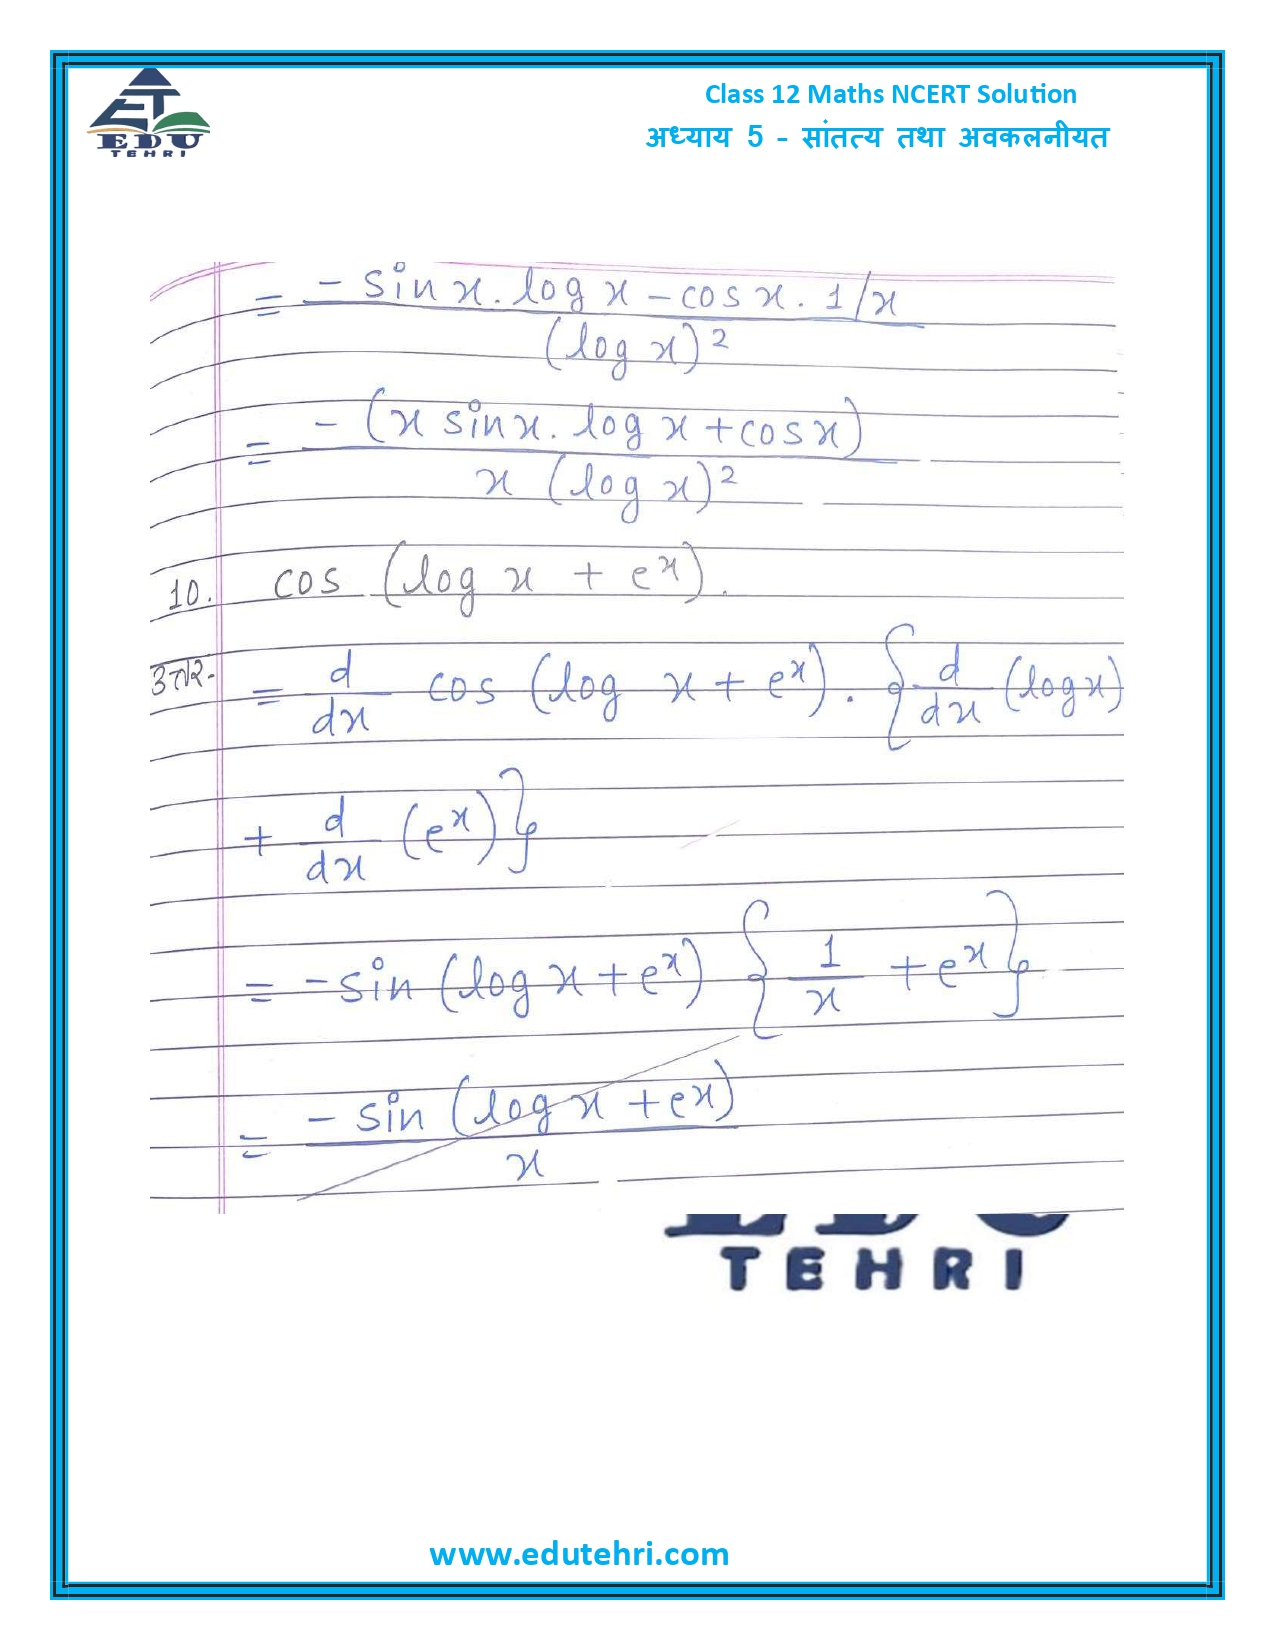 EDU
TEHRI
Class 12 Maths NCERT Solution
अध्याय 5 - सांतत्य तथा अवकलनीयत
= (- sin x . log x - cos x . 1/x) / (log x)²
= - (x sin x . log x + cos x) / x (log x)²
10. cos (log x + eˣ).
उत्तर- = d/dx cos (log x + eˣ) . { d/dx (log x)
+ d/dx (eˣ) }
= - sin (log x + eˣ) { 1/x + eˣ }
= - sin (log x + eˣ) / x
TEHRI
www.edutehri.com